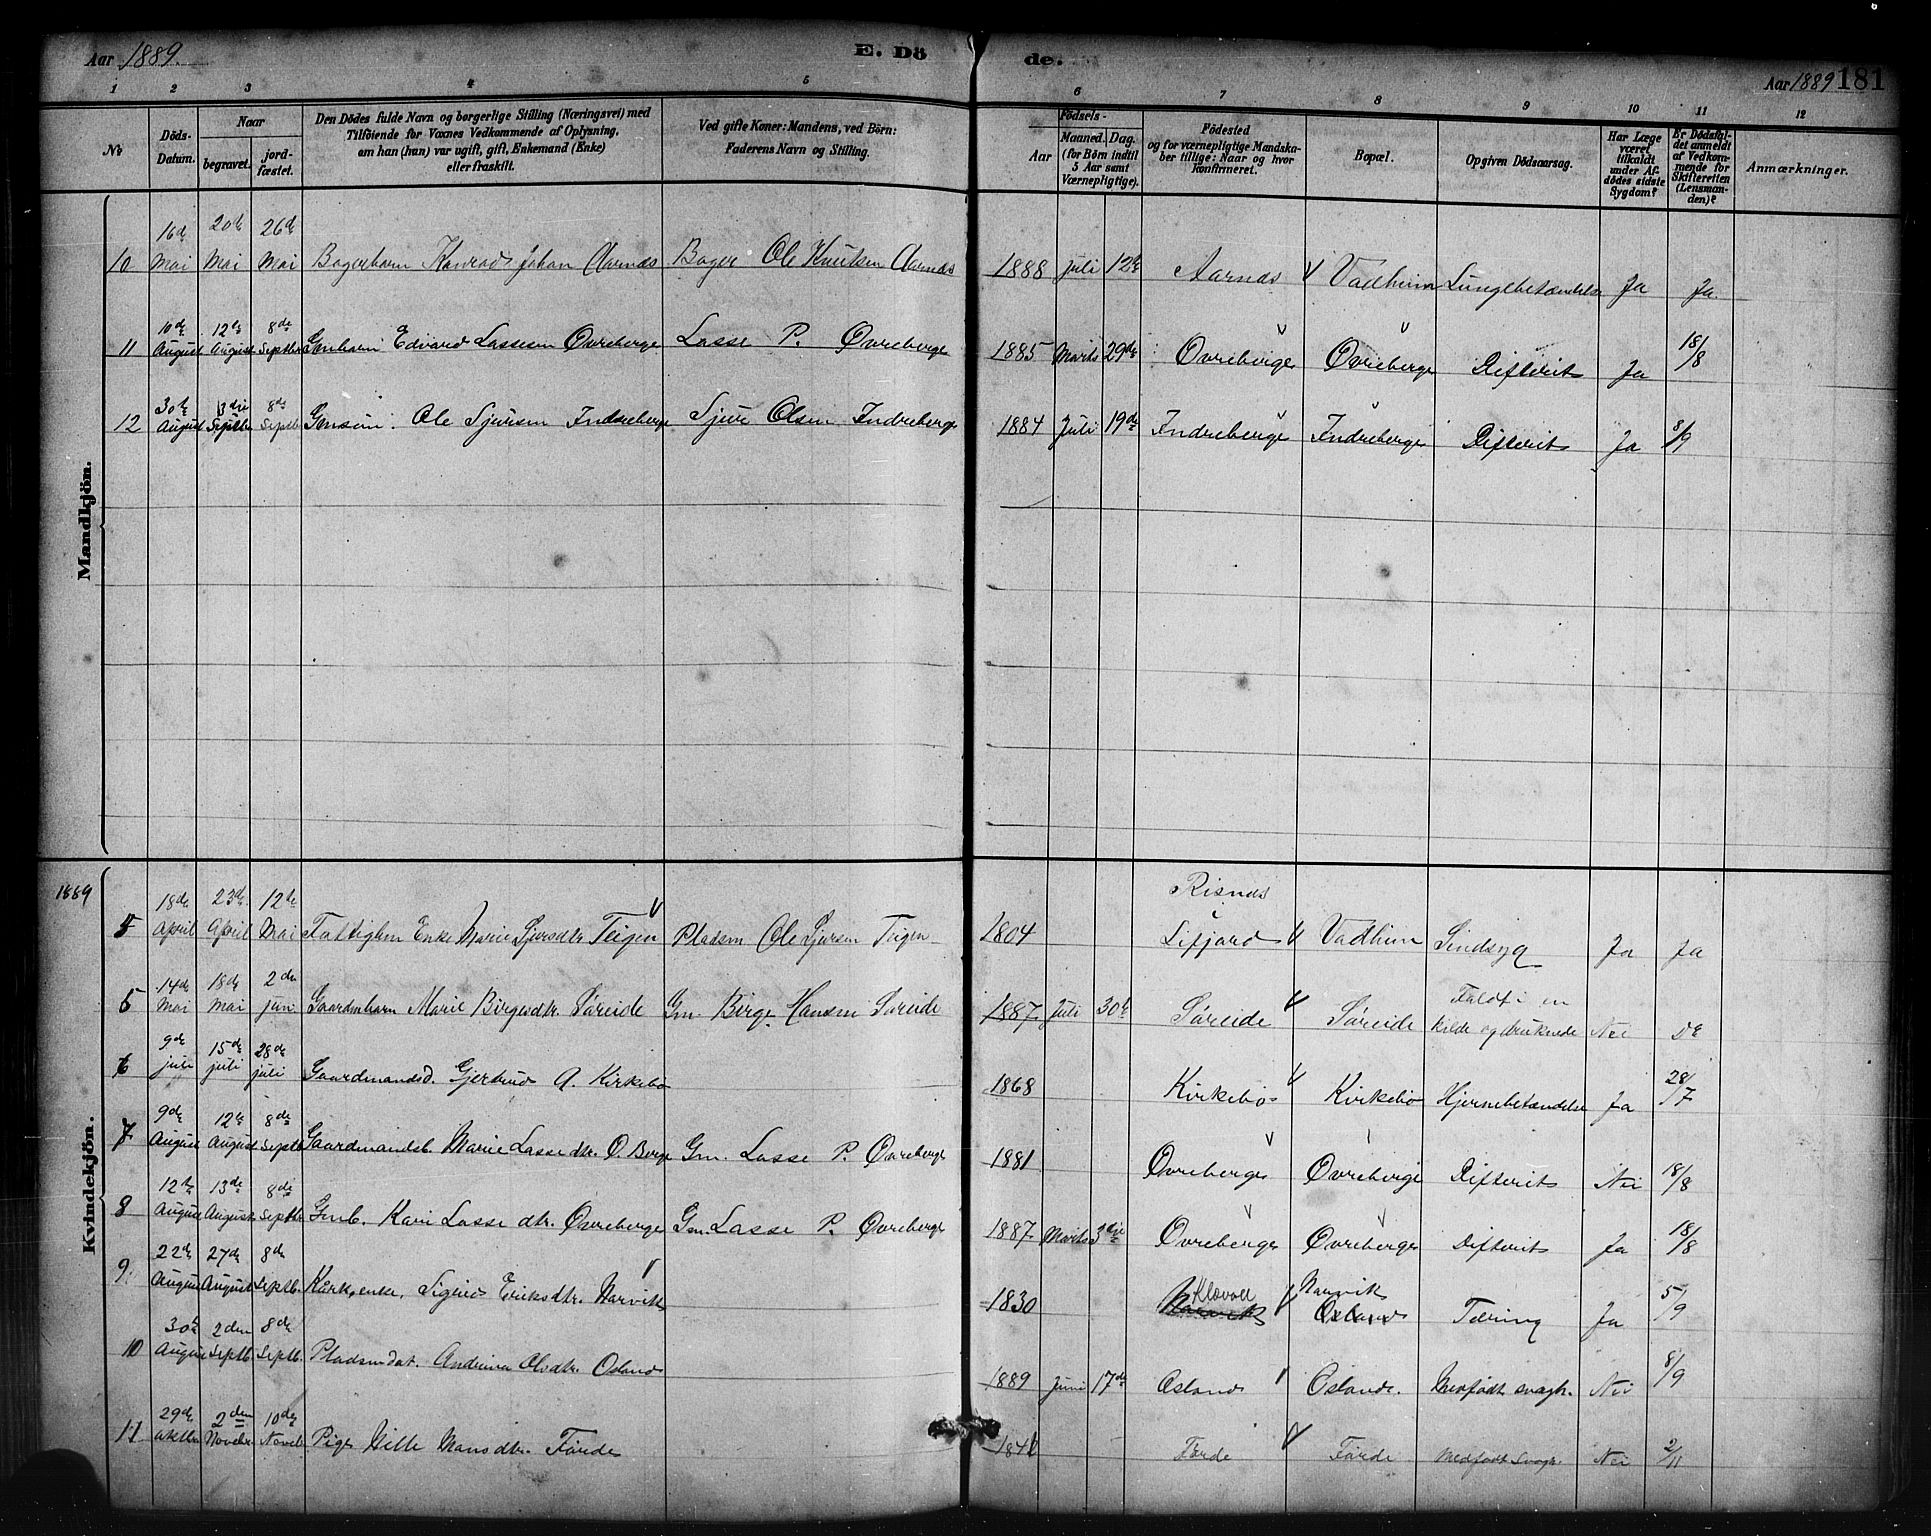 Aar 1889.
E. Dö
de.
Aar 1889
181
1 2 3 4 5 6 7 8 9 10 11 12
№
Döds-Datum.
Naar
begravet.
jord-fæstet.
Den Dödes fulde Navn og borgerlige Stilling (Næringsvei) med
Tilföiende for Voxnes Vedkommende af Oplysning,
om han (hun) var ugift, gift, Enkemand (Enke)
eller fraskilt.
Ved gifte Koner: Mandens, ved Börn:
Faderens Navn og Stilling.
Födsels-
Aar
Maaned.
Dag.
(for Börn indtil
5 Aar samt
Værnepligtige).
Födested
og for værnepligtige Mandska-
ber tillige: Naar og hvor
konfirmeret.
Bopæl.
Opgiven Dödsaarsag.
Har Læge
været
tilkaldt
under Af-
dödes sidste
Sygdom?
Er Dödsfal-
det anmeldt
af Vedkom-
mende for
Skifteretten
(Lensman-
den)?
Anmærkninger.
Mandkjön.
10 16de Mai 20de Mai 26de Mai Bagerbarn Konrad Johan Aarnæs Bager Ole Knutsen Aarnæs 1888 Juli 12te Aarnæs Vadheim Lungebetændelse Ja Ja.
11 10de August 12te August 8de Septbr Gmbarn Edvard Lassesen Øvreberge Lasse P. Øvreberge 1885 Marts 29de Øvreberge Øvreberge Difterit Ja 18/8
12 30te August 3die Septbr 8de Septb Gmsøn. Ole Sjursen Indreberge Sjur Olsen Indreberge 1884 Juli 19de Indreberge Indreberge Difterit Ja 8/9
1889
Kvindekjön.
5 18de April 23de April 12te Mai Fattiglem Enke Marie Sjursdtr Teigen Pladsm Ole Sjursen Teigen 1804 Risnæs Lefjord Vadheim Sindsyg Ja Ja
5 14de Mai 18de Mai 2den Juni Gaardmbarn Marie Birgesdtr. Søreide Gm. Birge Hansen Søreide 1887 Juli 30te Søreide Søreide Faldt i en kilde og druknede Nei De
6 9de juli 15de juli 28de juli Gaardmandsd. Gjertrud A. Kirkebø 1868 Kirkebø Kirkebø Hjernebetændelse Ja 28/7
7 9de August 12te August 8de Septb Gaardmandsb. Marie Lassedtr. Ø. Berge Gm. Lasse P. Øvreberge 1881 Øvreberge Øvreberge Difterit Nei 18/8
8 12te August 13de August 8de Septbr Gmb. Kari Lassedtr. Øvreberge Gm. Lasse P. Øvreberge 1887 Marts 3die Øvreberge Øvreberge Difterit Ja 18/8
9. 22de August 27de August 8de Septb. enke. Sigrid Eriksdtr. Narvik 1830 Klævold Narvik Osland Tæring Ja 5/9
10 30te August 2den Septb. 8de Septb. Pladsmdat. Andrina Olsdtr. Osland 1889 Juni 17de Osland Osland. Medfødt svagh. Nei 8/9
11 29de oktbr 2den Novebr 10de Noveb Pige Nille Monsdtr. Førde 1841 Førde Førde Medfødt svagh. Nei 2/11